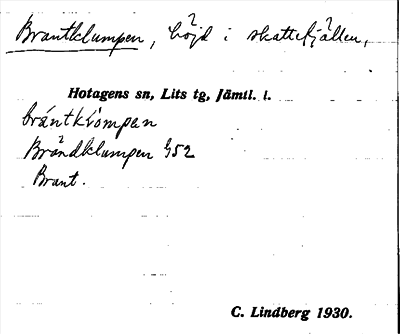 Brantklumpen, höjd i skattefjällen,
Hotagens sn, Lits tg, Jämtl. l.
brántkrompan
Brändklumpen G52
Brant.
C. Lindberg 1930.